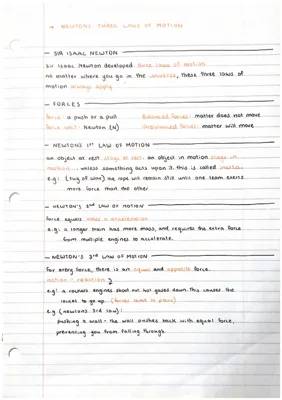 → NEWTONS THREE LAWS OF MOTION
- SIR ISAAC NEWTON
Sir Isaac Newton developed three laws of motion.
no matter where you go in the universe, these three laws of
motion always apply
- FORCES
force: a push or a pull
Balanced forces: matter does not move
force unit: Newton (N)
Unbalanced forces: matter will move
- NEWTON'S 1st LAW OF MOTION
an object at rest stays at rest. an object in motion stays in
motion... unless something acts upon it. this is called inertia.
e.g: (tug of war) the rope will remain still until one team exerts
more force than the other
- NEWTON'S 2nd LAW OF MOTION
force equals mass x acceleration
e.g: a longer train has more mass, and requires the extra force
from multiple engines to accelerate.
- NEWTON'S 3rd LAW OF MOTION
For every force, there is an equal and opposite force.
action - reaction
e.g: a rockets engines shoot out hot gases down. This causes the
rocket to go up. (forces come in pairs)
e.g (newtons 3rd law):
pushing a wall - the wall pushes back with equal force,
preventing you from falling through.